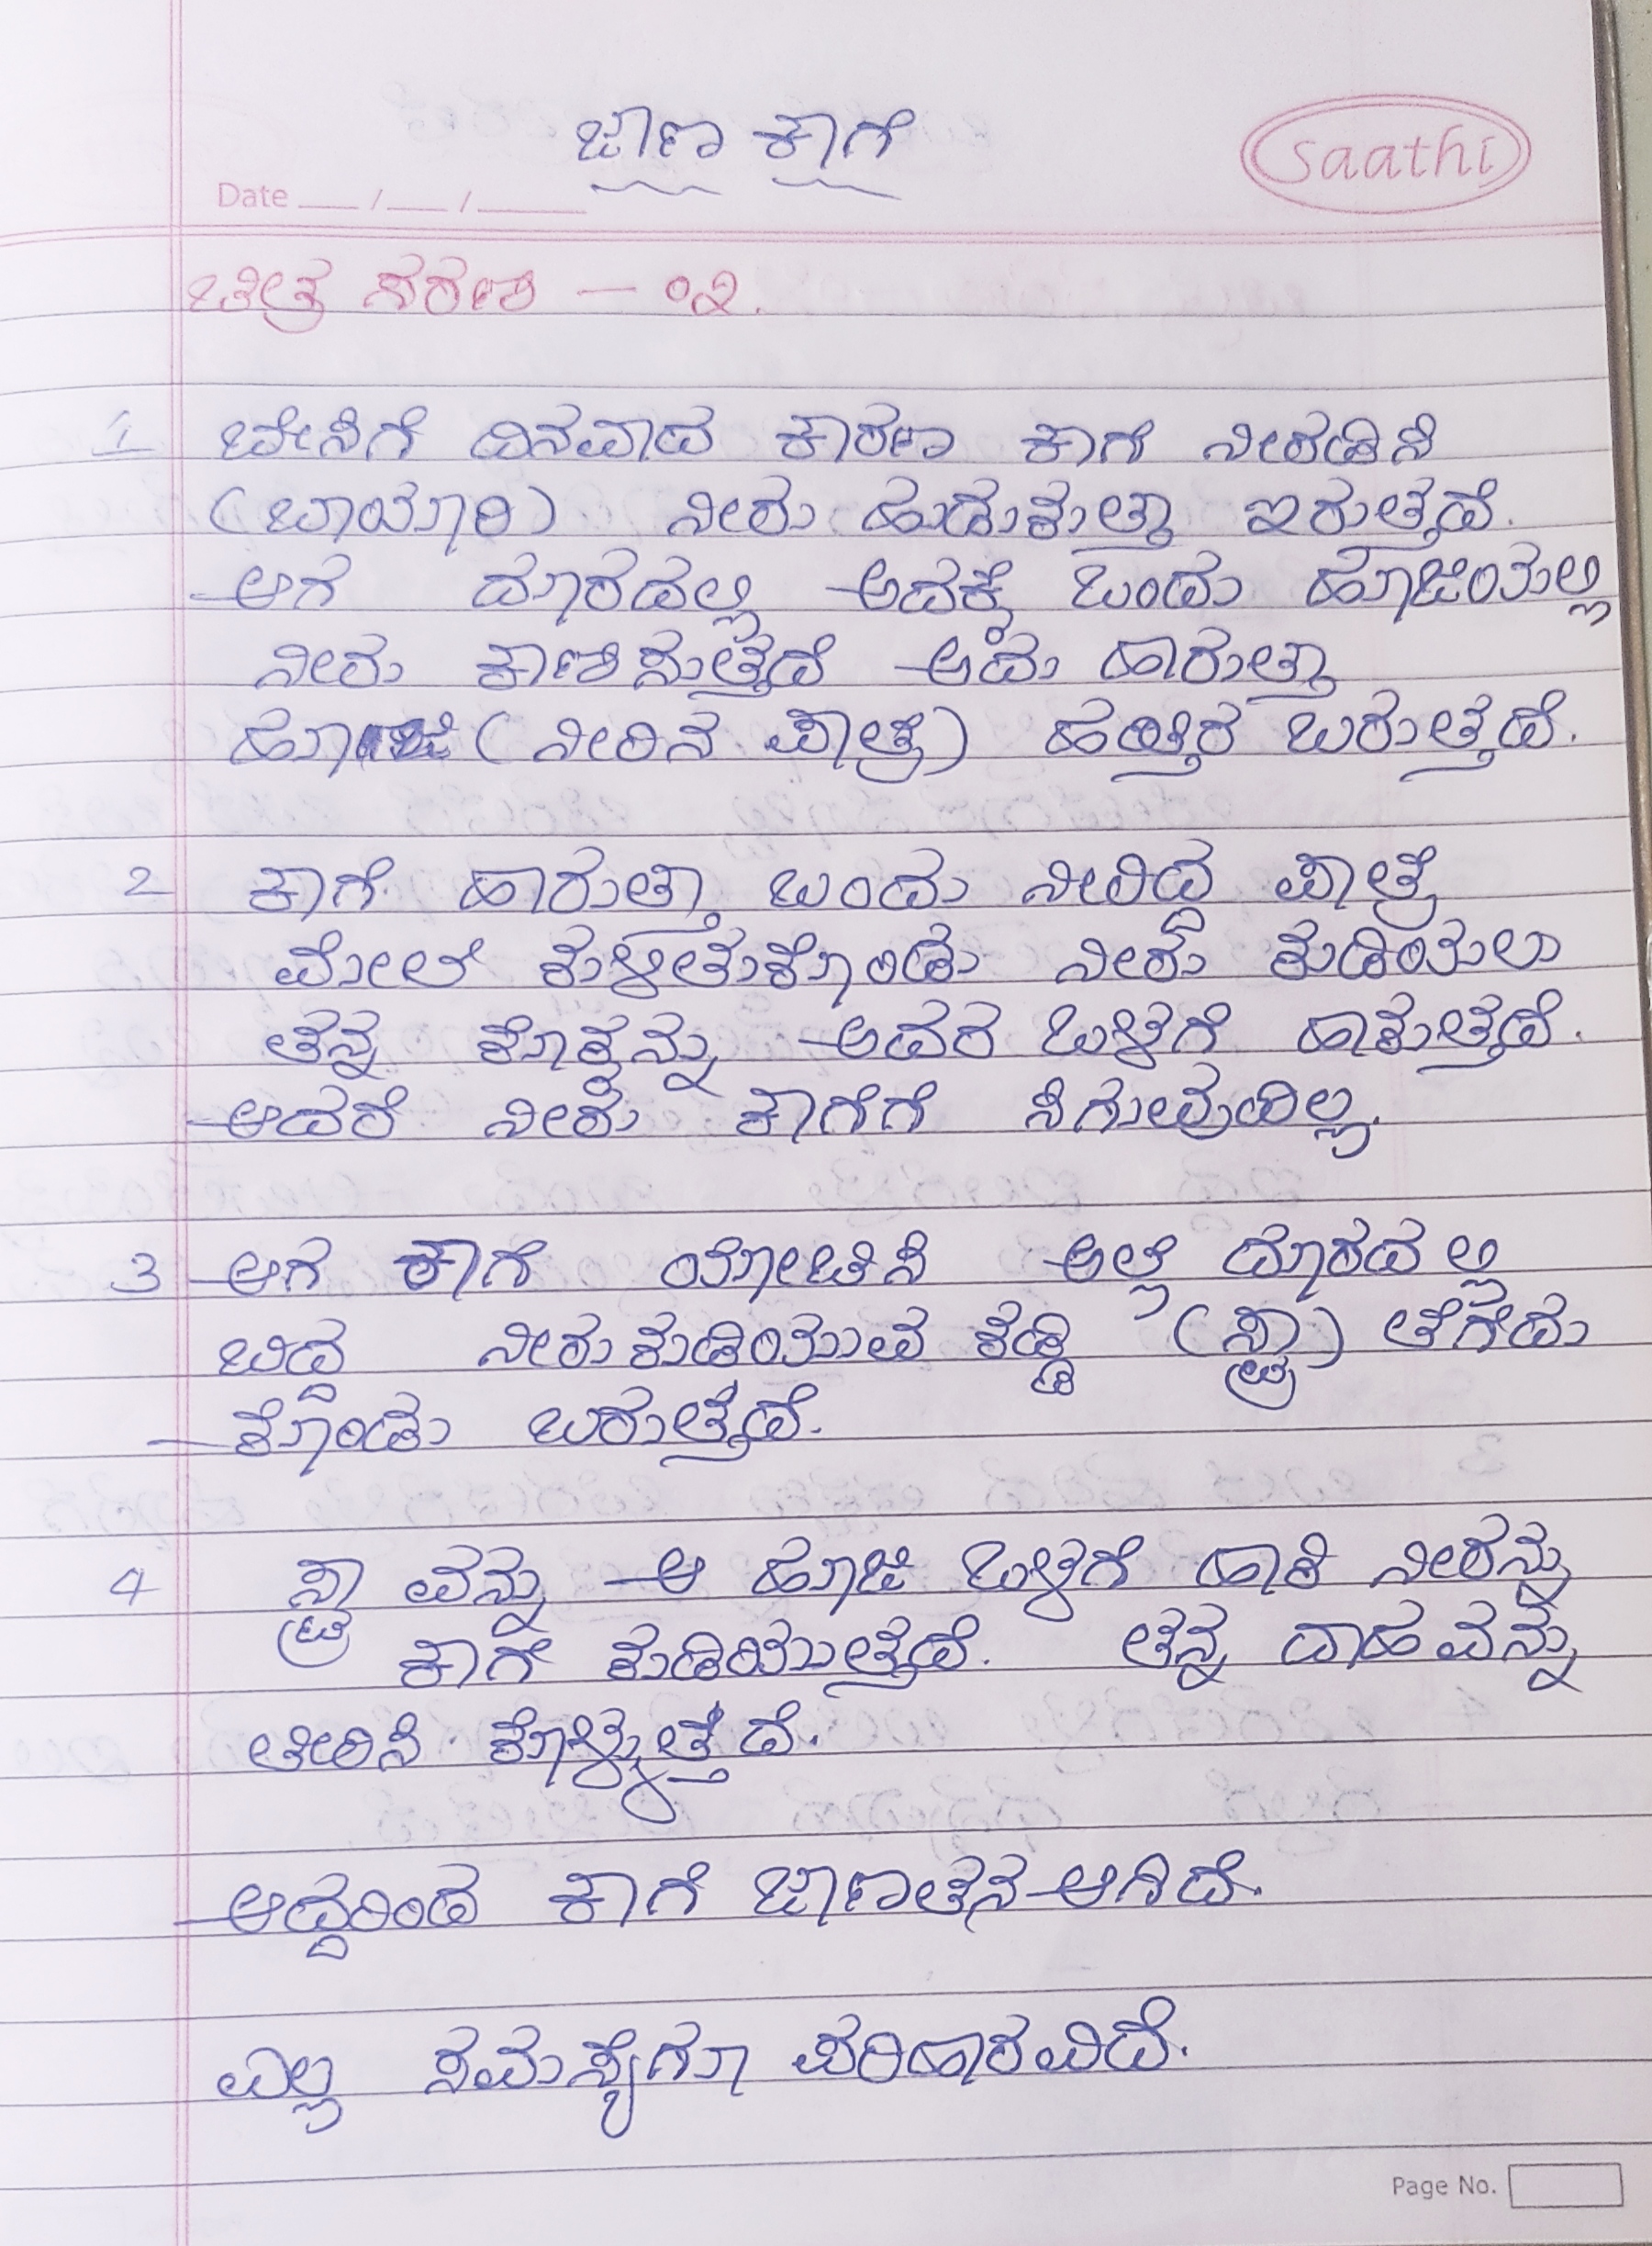 ಜಾಣ ಕಾಗೆ
saathi
Date __/__/____
ಚಿತ್ರ ಸರಣಿ - ೦೩.
1 ಬೇಸಿಗೆ ದಿನವಾದ ಕಾರಣ ಕಾಗೆ ನೀರಡಿಸಿ
(ಬಾಯಾರಿ) ನೀರು ಹುಡುಕುತ್ತಾ ಇರುತ್ತದೆ.
ಆಗ ದೂರದಲ್ಲಿ ಅದಕ್ಕೆ ಒಂದು ಹೂಜಿಯಲ್ಲಿ
ನೀರು ಕಾಣಿಸುತ್ತದೆ ಅದು ಹಾರುತ್ತಾ
ಹೂಜಿ (ನೀರಿನ ಪಾತ್ರೆ) ಹತ್ತಿರ ಬರುತ್ತದೆ.
2 ಕಾಗೆ ಹಾರುತ್ತಾ ಬಂದು ನೀರಿದ್ದ ಪಾತ್ರೆ
ಮೇಲೆ ಕುಳಿತುಕೊಂಡು ನೀರು ಕುಡಿಯಲು
ತನ್ನ ಕೊಕ್ಕನ್ನು ಅದರ ಒಳಗೆ ಹಾಕುತ್ತದೆ.
ಆದರೆ ನೀರು ಕಾಗೆಗೆ ಸಿಗುವುದಿಲ್ಲ.
3 ಆಗ ಕಾಗೆ ಯೋಚಿಸಿ ಅಲ್ಲೆ ದೂರದಲ್ಲಿ
ಬಿದ್ದ ನೀರು ಕುಡಿಯುವ ಕಡ್ಡಿ (ಸ್ಟ್ರಾ) ತೆಗೆದು
ಕೊಂಡು ಬರುತ್ತದೆ.
4 ಸ್ಟ್ರಾ ವನ್ನು ಆ ಹೂಜಿ ಒಳಗೆ ಹಾಕಿ ನೀರನ್ನು
ಕಾಗೆ ಕುಡಿಯುತ್ತದೆ. ತನ್ನ ದಾಹವನ್ನು
ತೀರಿಸಿ ಕೊಳ್ಳುತ್ತದೆ.
ಆದ್ದರಿಂದ ಕಾಗೆ ಜಾಣತನ ಆಗಿದೆ.
ಎಲ್ಲ ಸಮಸ್ಯೆಗೂ ಪರಿಹಾರವಿದೆ.
Page No.